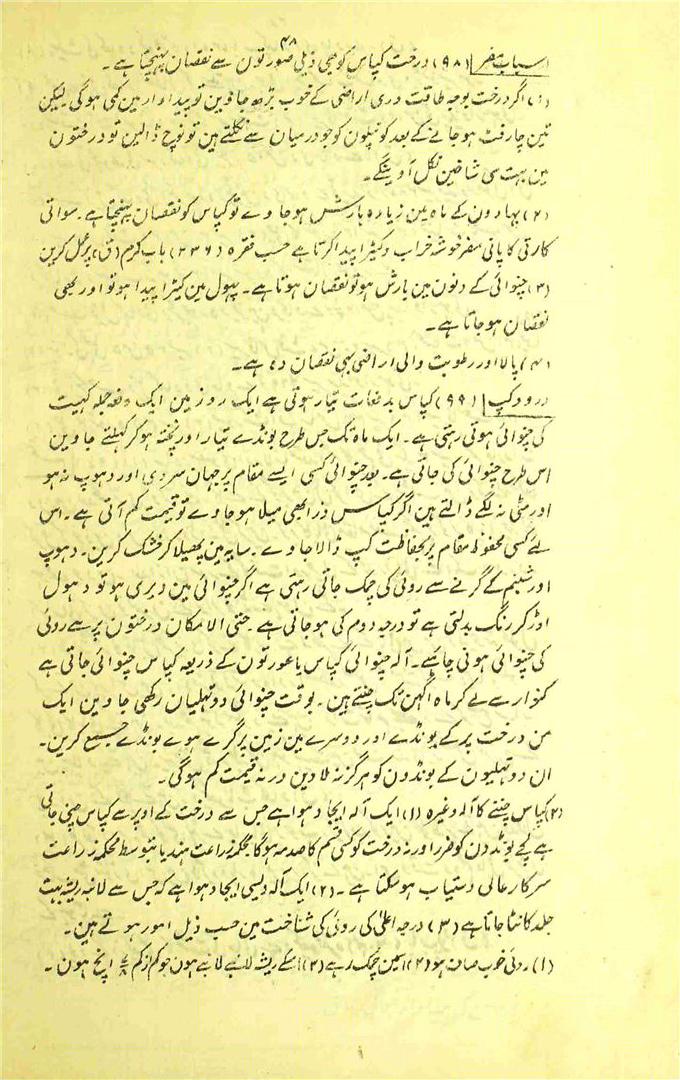 ۴۸
اسباب مضر (۹۸) درخت کپاس کو بھی ذیلی صورتون سے نقصان پہنچتا ہے۔
(۱) اگر درخت بوجہ طاقت وری اراضی کے خوب بڑھ جاوین تو پیداوار مین کمی ہوگی لیکن
تین چار فٹ ہو جانے کے بعد کونپلون کو جو درمیان سے نکلتے ہین تو نوچ ڈالین تو درختون
مین بہت سی شاخین نکل آوینگے۔
(۲) بھادون کے ماہ مین زیادہ بارش ہو جاوے تو کپاس کو نقصان پہنچتا ہے۔ سواتی
کارتی کا پانی مضر خوشہ خراب و کیڑا پیدا کرتا ہے حسب فقرہ (۲۳۶) باب کرم (ق) پر عمل کرین
(۳) چنوائی کے دنون مین بارش ہو تو نقصان ہوتا ہے۔ پہول مین کیڑا پیدا ہو تو اور بھی
نقصان ہو جاتا ہے۔
(۴) پالا اور رطوبت والی اراضی بہی نقصان دہ ہے۔
درو و کپ (۹۹) کپاس بدفعات تیار ہوتی ہے ایک روز مین ایک دفعہ جملہ کہیت
کی چنوائی ہوتی رہتی ہے۔ ایک ماہ تک جس طرح بونڈے تیار اور پختہ ہو کر کہلتے جاوین
اس طرح چنوائی کی جاتی ہے۔ بعد چنوائی کسی ایسے مقام پر جہان سردی اور دہوپ نہ ہو
اور مٹی نہ لگے ڈالتے ہین اگر کپاس ذرا بھی میلا ہو جاوے تو قیمت کم آتی ہے۔ اس
لئے کسی محفوظ مقام پر بحفاظت کپ ڈالا جاوے۔ سایہ مین پھیلا کر خشک کرین۔ دہوپ
اور شبنم کے گرنے سے روئی کی چمک جاتی رہتی ہے اگر چنوائی مین دیری ہو تو دہول
اوڑ کر رنگ بدلتی ہے تو درجہ دوم کی ہو جاتی ہے۔ حتی الامکان درختون پر سے روئی
کی چنوائی ہونی چاہئیے۔ آلہ چنوائی کپاس یا عورتون کے ذریعہ کپاس چنوائی جاتی ہے
کنوار سے لے کر ماہ اگہن تک چنتے ہین۔ بوقت چنوائی دو تہلیان رکھی جاوین ایک
من درخت پر کے بونڈے اور دوسرے مین زمین پر گرے ہوے بونڈے جمع کرین۔
ان دو تہلیون کے بونڈون کو ہرگز نہ لادین ورنہ قیمت کم ہوگی۔
(۲) کپاس چننے کا آلہ وغیرہ (۱) ایک آلہ ایجاد ہوا ہے جس سے درخت کے اوپر سے کپاس چنی جاتی
ہے کچے بونڈون کو ضرر اور نہ درخت کو کسی قسم کا صدمہ ہوگا محکمہ زراعت ہند یا بتوسط محکمہ زراعت
سرکار عالی دستیاب ہو سکتا ہے۔ (۲) ایک آلہ دیسی ایجاد ہوا ہے کہ جس سے لانبہ ریشہ بہت
جلد کانٹا جاتا ہے (۳) درجہ اعلیٰ کی روئی کی شناخت مین حسب ذیل امور ہوتے ہین۔
(۱) روئی خوب صاف ہو (۲) اسمین چمک رہے (۳) اسکے ریشہ لانبے لانبے ہون جو کم از کم انچ ہون۔